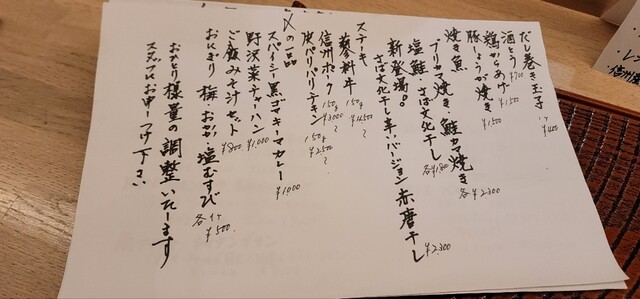 だし巻き玉子 ハーフ ¥400
酒とう ¥700
鶏からあげ ¥1500
豚しょうが焼き ¥1500
焼き魚
ブリカマ焼き・鮭カマ焼き 各¥2300
塩鮭・さば文化干し 各¥1800
新登場。
さば文化干し 辛バージョン 赤唐干し ¥2300
ステーキ
蓼科牛 150g ¥4500〜
信州ポーク 150g ¥3000〜
皮パリパリチキン 150g ¥2500〜
〆の一品
スパイシー黒ゴマキーマカレー ¥1000
野沢菜チャーハン ¥1000
ご飯みそ汁セット ¥800
おにぎり 梅・おかか・塩むすび 各1ヶ ¥500
おひとり様量の調整いたします
スタッフにお申しつけ下さい